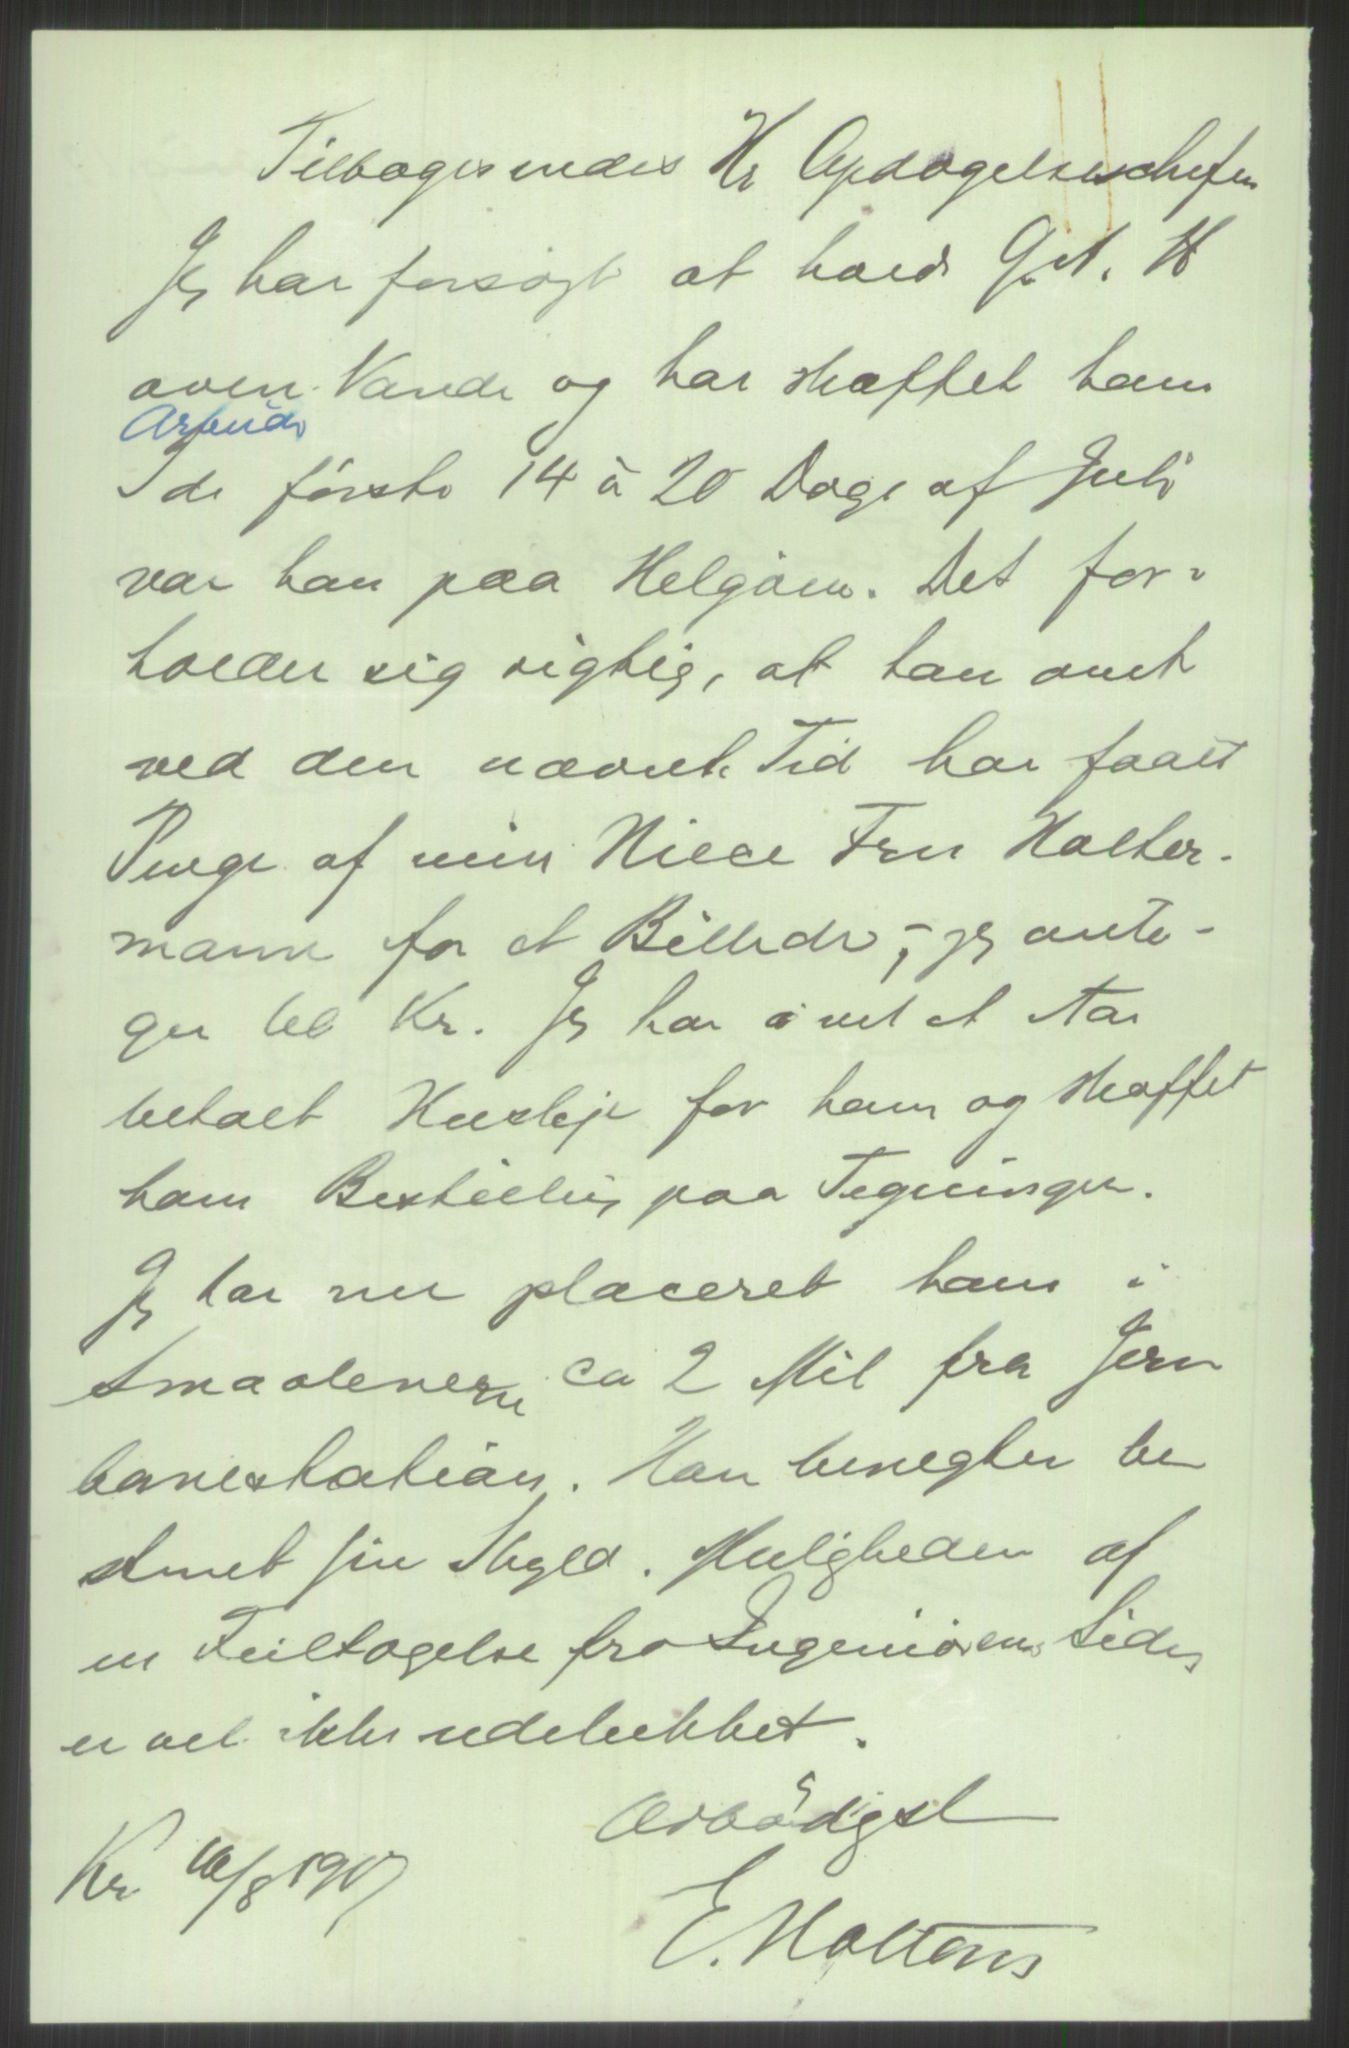 Tilbagesendes Hr Opdagelseschefen
Jeg har forsøgt at holde G. A. H
oven Vande og har skaffet ham
Arbeide
I de første 14 à 20 Dage af Juli
var han paa Helgøen. Det for-
holder sig rigtig, at han omt
ved den nævnte Tid har faaet
Penge af min Niece Fru Halter-
mann for et Billede, – jeg anta-
ger Kr. Jeg har i vel et Aar
betalt Husleje for ham og skaffet
ham Bestilling paa Tegninger.
Jeg har nu placeret ham i
Smaalenene ca 2 Mil fra Jern
banestation. Han benegter be
stemt sin Skyld. Muligheden af
en Feiltagelse fra Ingeniørens Side
er vel ikke udelukket.
Ærbødigst
Kr. 16/8 1907
E. Holtens